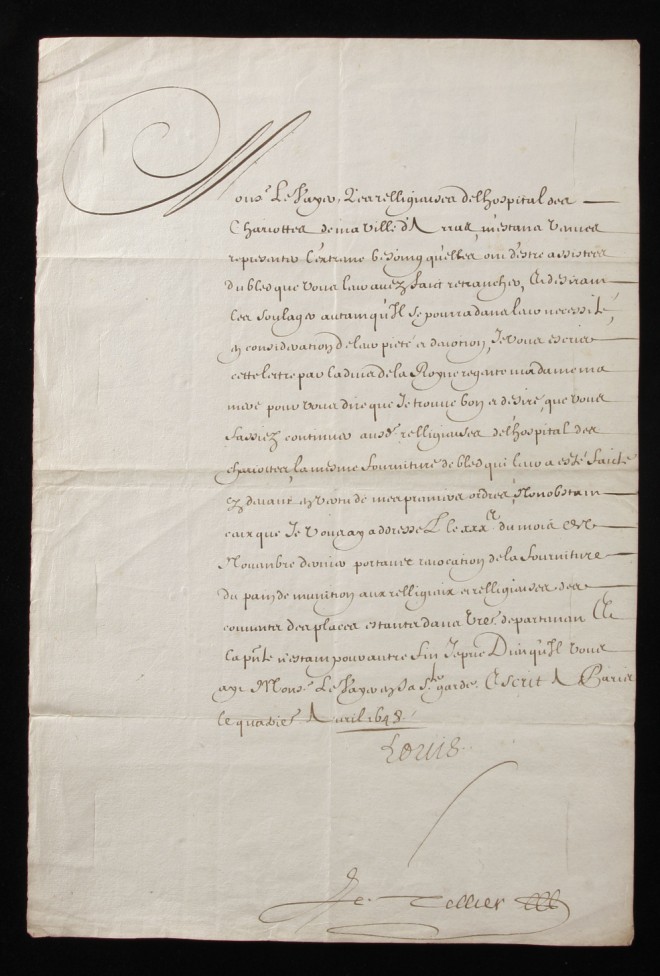 Monsr Le Vayer, Les relligieuses de l'hospital des
Chariottes de ma ville d'Arras, m'estans venues
representer l'extreme besoing qu'elles ont d'estre assistées
du bled que vous leur avez faict retrancher, Et desirant
les soulager autant qu'Il se pourra dans leur necessité,
en consideration de leur pieté et devotion, Je vous escris
cette lettre par l'advis de la Royne regente madame ma
mere pour vous dire que Je trouve bon et desire, que vous
fassiez continuer ausd. relligieuses de l'hospital des
chariottes, la mesme fourniture de bled qui leur a esté faicte
cy devant en vertu de mes premiers ordres, Nonobstant
ceux que Je vous ay addressé le xxxe du mois de
Novembre dernier portant revocation de la fourniture
du pain de munition aux relligieux et relligieuses des
convents des places estantes dans vre departement Et
la pnte n'estant pour autre fin Je prie Dieu qu'Il vous
ayt Monsr Le Vayer en sa ste garde. Escrit A Paris
le quatrie Avril 1648.
Louis
Le Tellier